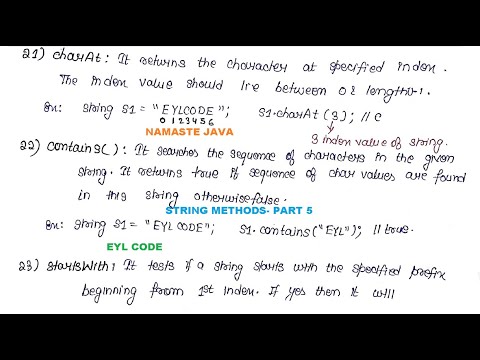 21) charAt : It returns the character at specified index .
The index value should be between 0 & length()-1 .
En: string S1 = "EYLCODE" ; S1.charAt (3) ; // C
0 1 2 3 4 5 6
NAMASTE JAVA
3 index value of string.
22) contains( ) : It searches the sequence of characters in the given
string . It returns true if sequence of char values are found
in this string otherwise false .
STRING METHODS- PART 5
En: string S1 = "EYL CODE" ; S1. contains("EYL"); // true.
EYL CODE
23) startsWith : It tests if a string starts with the specified prefix
beginning from 1st index . If yes then it will